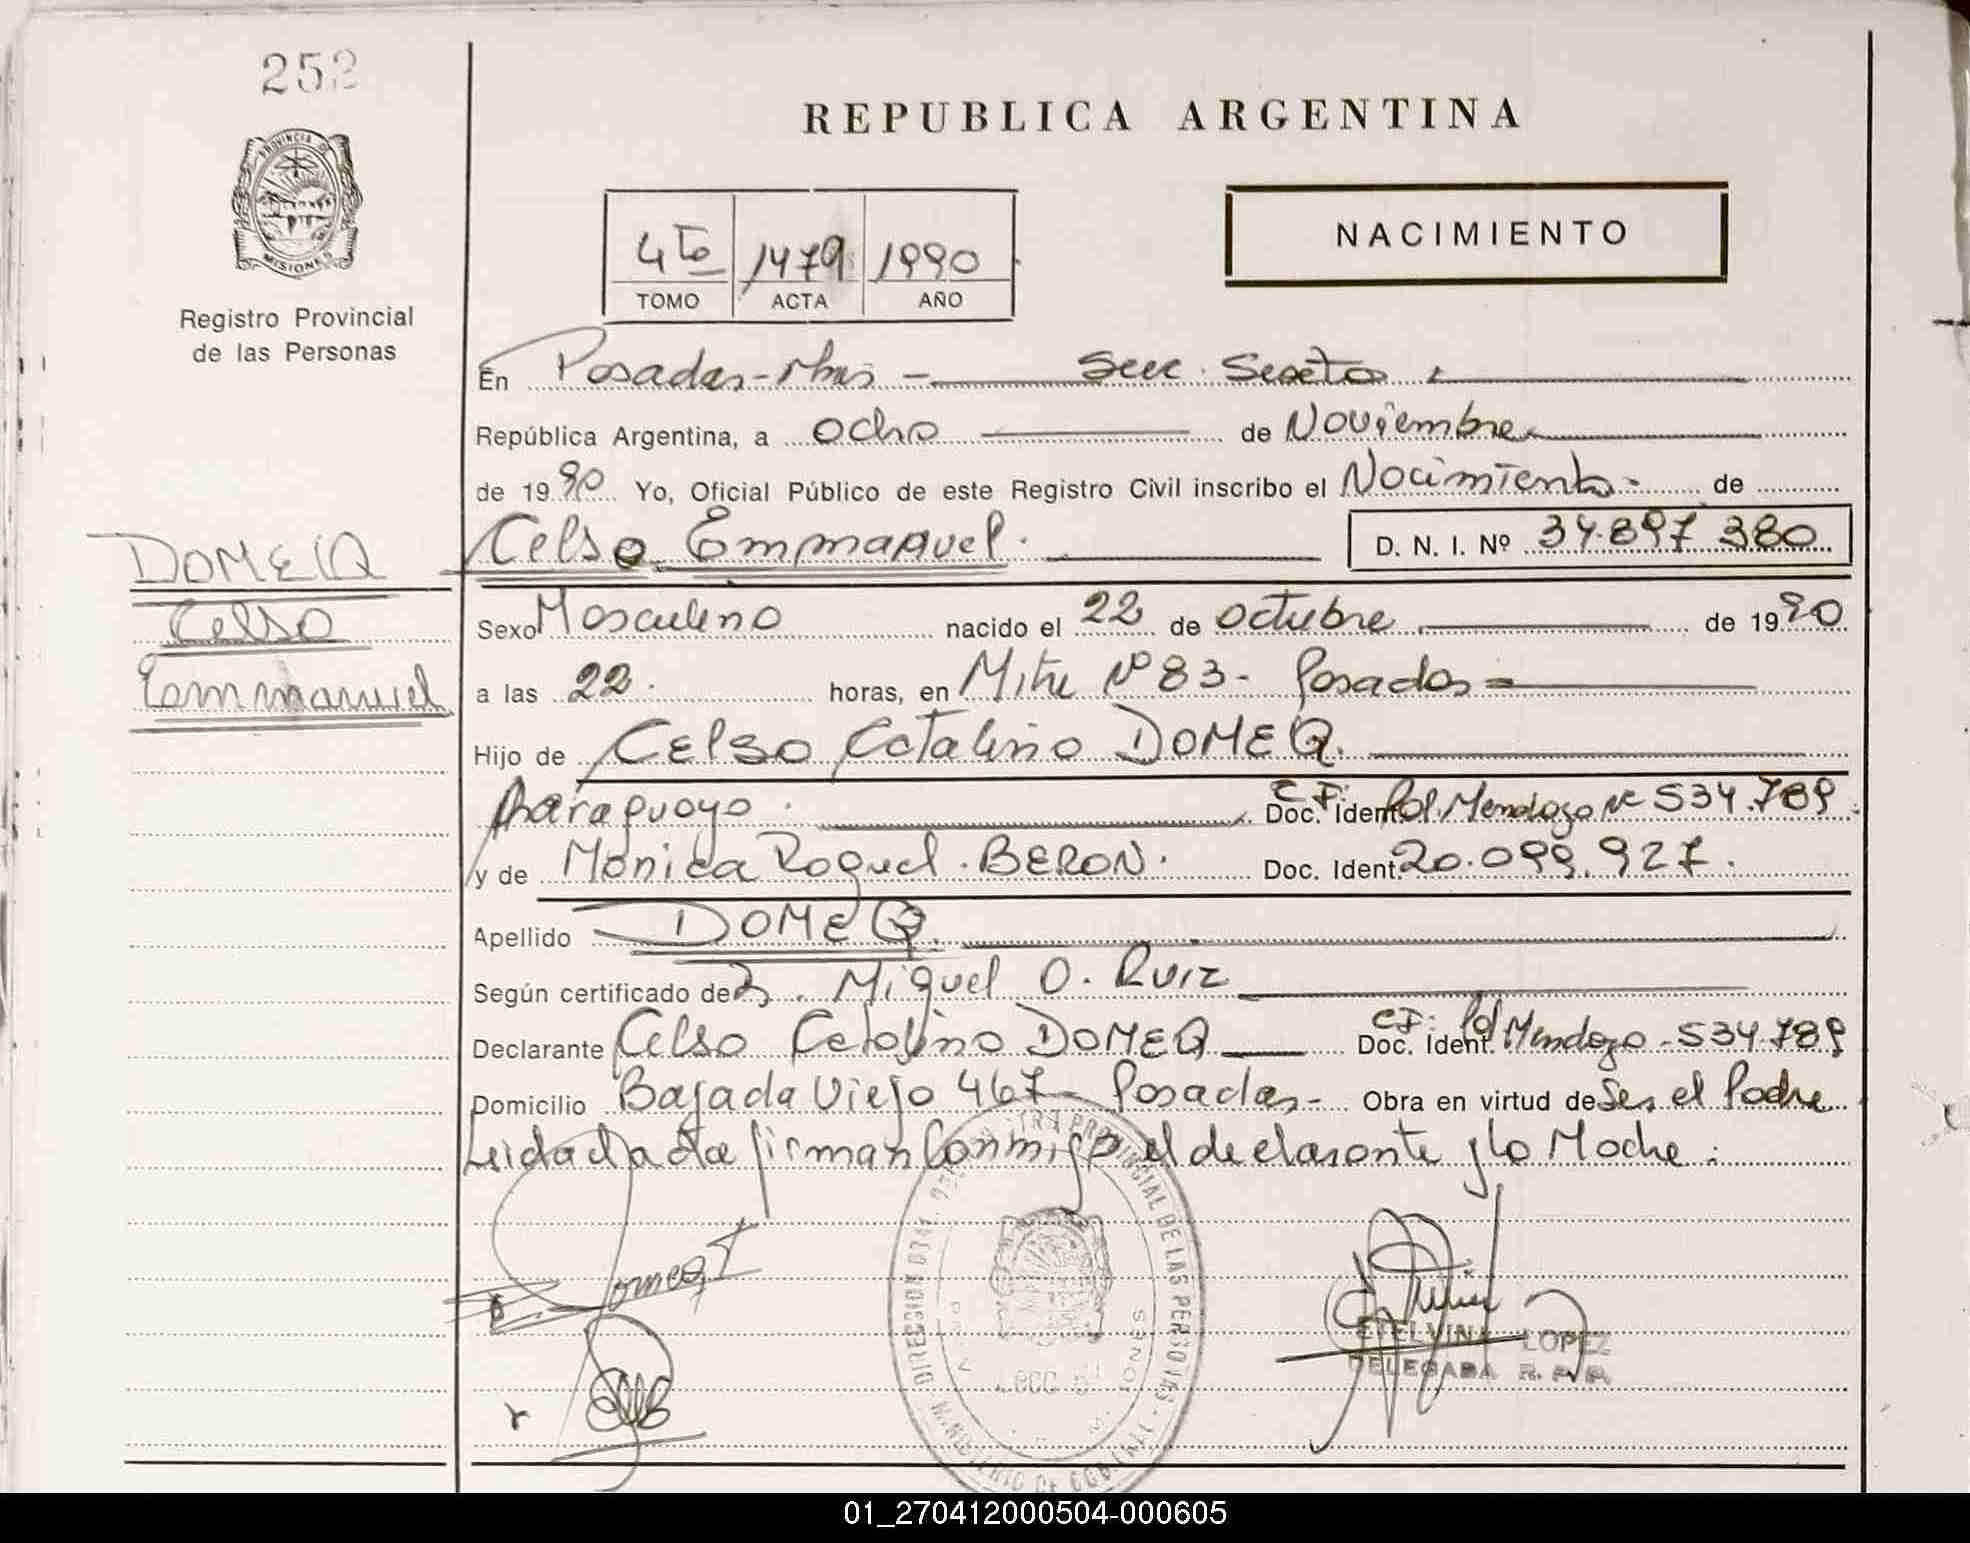 252
REPUBLICA ARGENTINA
PROVINCIA DE
MISIONES
Registro Provincial
de las Personas
4to 1479 1990
TOMO ACTA AÑO
NACIMIENTO
En Posadas-Mnes - Secc. Sexta
República Argentina, a ocho de Noviembre
de 1990 Yo, Oficial Público de este Registro Civil inscribo el Nacimiento - de
DOMEQ
Celso
Emmanuel
Celso Emmanuel. D. N. I. Nº 34.897.380
Sexo Masculino nacido el 22 de octubre de 1990
a las 22. horas, en Mitre Nº 83 - Posadas -
Hijo de Celso Catalino DOMEQ.
Paraguayo. Doc. Ident. C.I. Pol. Mendoza Nº 534.789.
y de Mónica Raquel BERON. Doc. Ident. 20.099.927.
Apellido DOMEQ.
Según certificado de Miguel O. Ruiz
Declarante Celso Catalino DOMEQ Doc. Ident. C.I. Pol Mendoza - 534.789
Domicilio Bajada Vieja 467 - Posadas - Obra en virtud de Ser el Padre
Leida el acta firman conmigo el declarante y la Madre.
DIRECCION GRAL. REGISTRO PROVINCIAL DE LAS PERSONAS
MINISTERIO DE GOB.
MISIONES
ETELVINA LOPEZ
DELEGADA R.P.P.
01_270412000504-000605